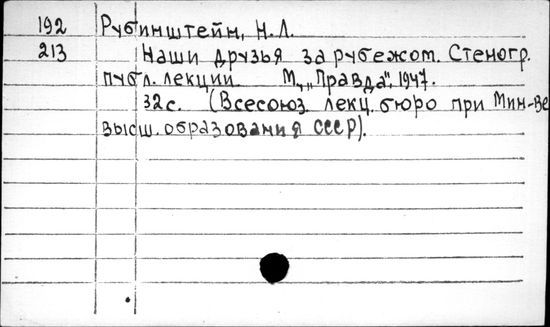 192 Рубинштейн, Н.Л.
213 Наши друзья за рубежом. Стеногр.
публ. лекции. М., „Правда“, 1947.
32 с. (Всесоюз. лекц. бюро при Мин-ве
высш. образования СССР).